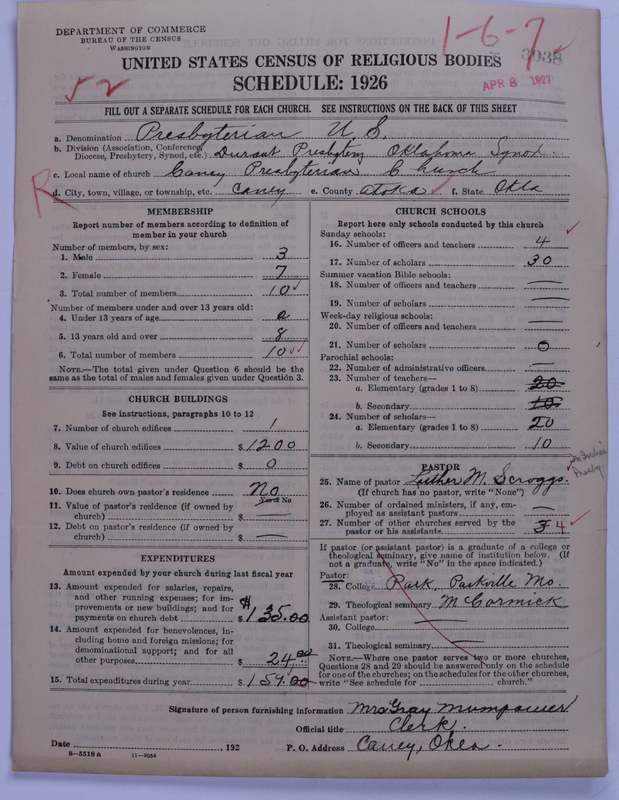 DEPARTMENT OF COMMERCE
BUREAU OF THE CENSUS
WASHINGTON
1-6-7
3038
APR 8 1927
52
UNITED STATES CENSUS OF RELIGIOUS BODIES
SCHEDULE: 1926
FILL OUT A SEPARATE SCHEDULE FOR EACH CHURCH. SEE INSTRUCTIONS ON THE BACK OF THIS SHEET
a. Denomination Presbyterian U.S.
b. Division (Association, Conference, Diocese, Presbytery, Synod, etc.) Durant Presbytery Oklahoma Synod.
c. Local name of church Caney Presbyterian Church
R
d. City, town, village, or township, etc. Caney e. County Atoka f. State Okla
MEMBERSHIP
Report number of members according to definition of
member in your church
Number of members, by sex:
1. Male 3
2. Female 7
3. Total number of members 10
Number of members under and over 13 years old:
4. Under 13 years of age
5. 13 years old and over 8
6. Total number of members 10
NOTE.—The total given under Question 6 should be
the same as the total of males and females given under Question 3.
CHURCH BUILDINGS
See instructions, paragraphs 10 to 12
7. Number of church edifices 1
8. Value of church edifices $ 1200
9. Debt on church edifices $ 0
10. Does church own pastor's residence No
Yes or No
11. Value of pastor's residence (if owned by
church) $ —
12. Debt on pastor's residence (if owned by
church) $ —
EXPENDITURES
Amount expended by your church during last fiscal year
13. Amount expended for salaries, repairs,
and other running expenses; for im-
provements or new buildings; and for
payments on church debt $ 135.00
14. Amount expended for benevolences, in-
cluding home and foreign missions; for
denominational support; and for all
other purposes $ 24.00
15. Total expenditures during year $ 159.00
CHURCH SCHOOLS
Report here only schools conducted by this church
Sunday schools:
16. Number of officers and teachers 4
17. Number of scholars 30
Summer vacation Bible schools:
18. Number of officers and teachers —
19. Number of scholars —
Week-day religious schools:
20. Number of officers and teachers —
21. Number of scholars 0
Parochial schools:
22. Number of administrative officers —
23. Number of teachers—
a. Elementary (grades 1 to 8) 20
b. Secondary 10
24. Number of scholars—
a. Elementary (grades 1 to 8) 20
b. Secondary 10
PASTOR
25. Name of pastor Luther M. Scroggs.
(If church has no pastor, write "None")
26. Number of ordained ministers, if any, em-
ployed as assistant pastors —
27. Number of other churches served by the
pastor or his assistants 3 4
If pastor (or assistant pastor) is a graduate of a college or
theological seminary, give name of institution below. (If
not a graduate, write "No" in the space indicated.)
Pastor:
28. College Park Parkville Mo.
29. Theological seminary McCormick
Assistant pastor:
30. College —
31. Theological seminary —
NOTE.—Where one pastor serves two or more churches,
Questions 28 and 29 should be answered only on the schedule
for one of the churches; on the schedules for the other churches,
write "See schedule for church."
Signature of person furnishing information Mrs Gray Mumpower
Official title Clerk.
Date , 192 P. O. Address Caney, Okla.
8—5518 a 11—9054